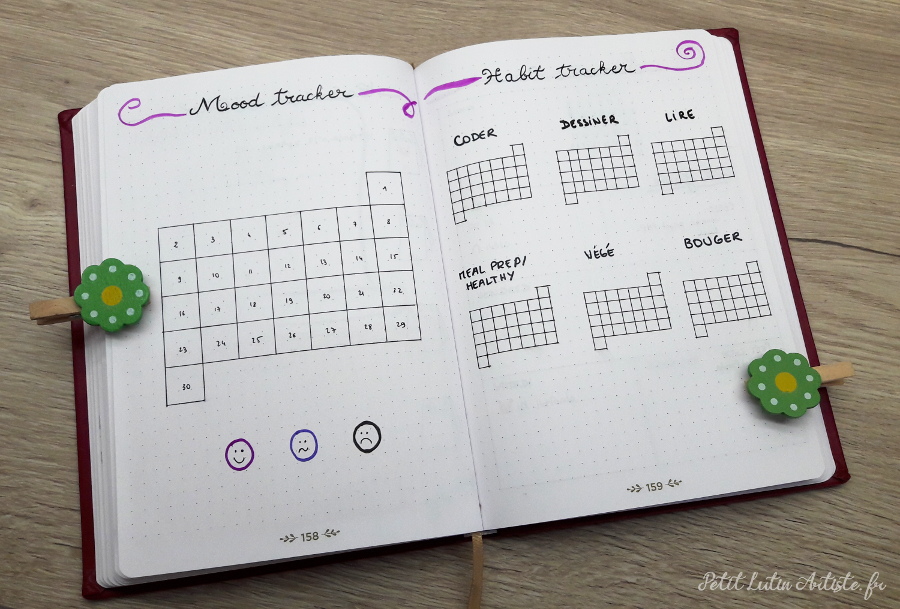 Mood tracker
1
2 3 4 5 6 7 8
9 10 11 12 13 14 15
16 17 18 19 20 21 22
23 24 25 26 27 28 29
30
158
Habit tracker
CODER DESSINER LIRE
MEAL PREP/
HEALTHY
VÉGÉ
BOUGER
159
Petit Lutin Artiste.fr